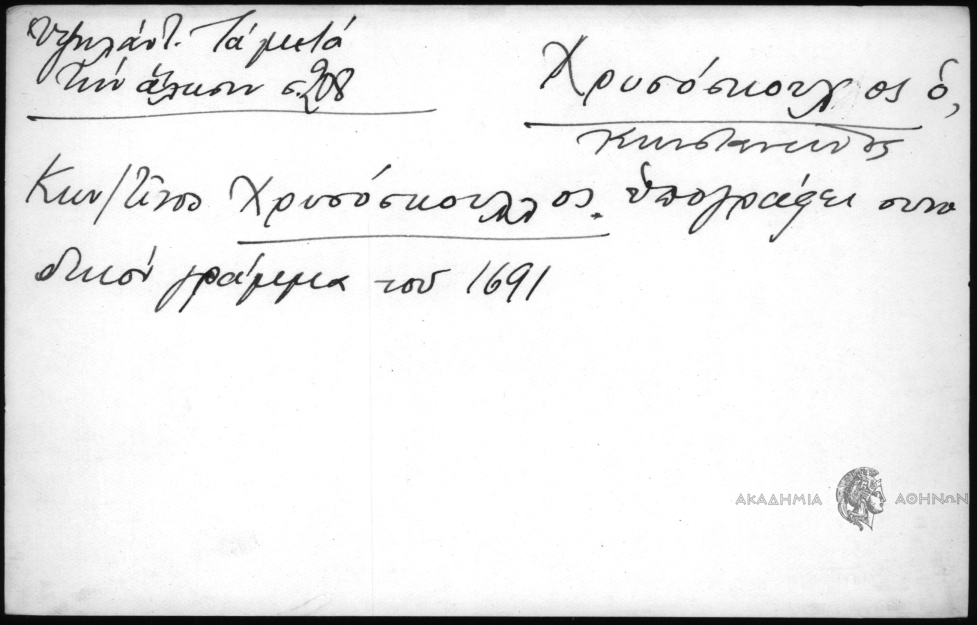 Ὑψηλάντ. Τά μετά
τήν ἅλωσιν σ. 208
Χρυσόσκουλος ὁ,
Κωνσταντῖνος
Κων/τῖνος Χρυσόσκουλλος. ὑπογράφει συνο
δικόν γράμμα τοῦ 1691
ΑΚΑΔΗΜΙΑ ΑΘΗΝΩΝ